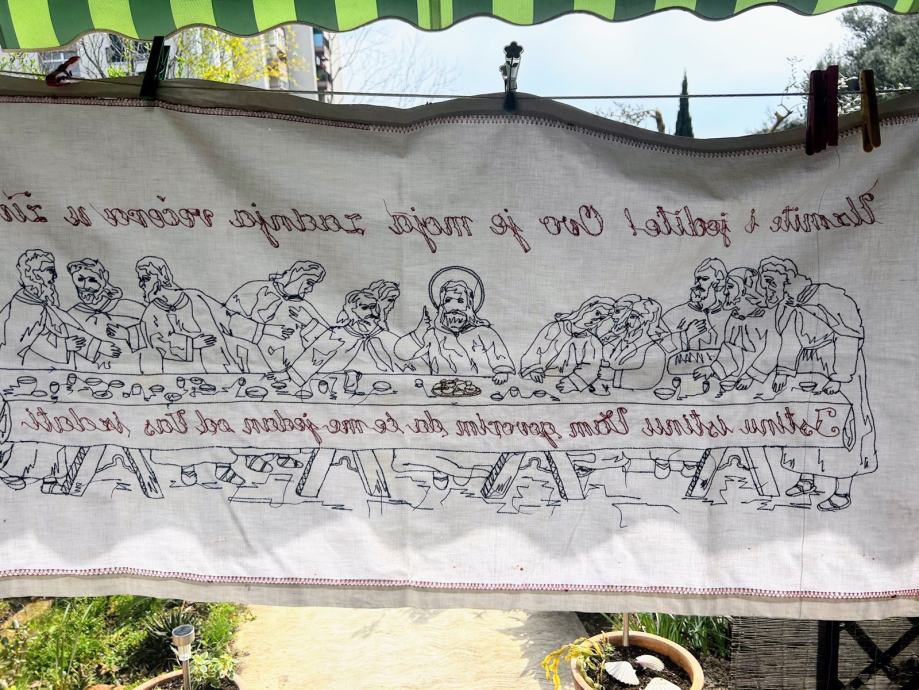 Uzmite i jedite! Ovo je moja zadnja večera u
Istinu istinu Vam govorim da će me jedan od Vas izdati